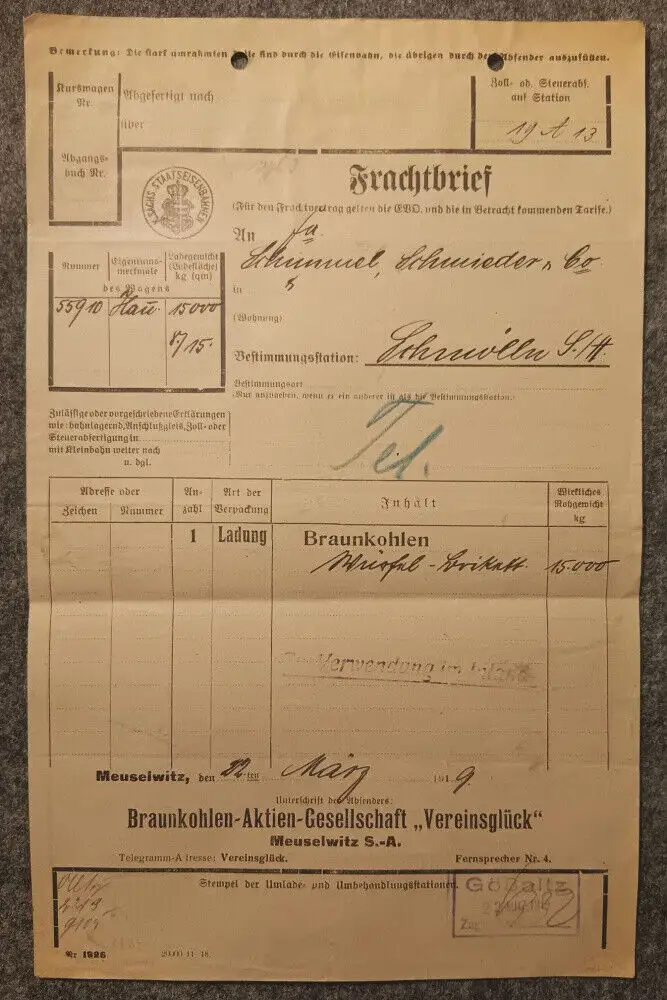 Bemerkung: Die stark umrahmten Teile sind durch die Eisenbahn, die übrigen durch den Absender auszufüllen.
Kurswagen Nr.
Abgangsbuch Nr.
Abgefertigt nach
über
Zoll- od. Steuerabf.
auf Station
19 A 13
K. SÄCHS. STAATSEISENBAHNEN
Frachtbrief
(Für den Frachtvertrag gelten die EVO. und die in Betracht kommenden Tarife.)
An Fa
Schummel, Schmieder & Co
in
(Wohnung)
Bestimmungsstation: Schmölln S./A.
Bestimmungsort
(Nur anzugeben, wenn er ein anderer ist als die Bestimmungsstation.)
Nummer Eigentumsmerkmale Ladegewicht (Ladefläche) kg (qm)
des Wagens
55910 15000
15.
Zulässige oder vorgeschriebene Erklärungen
wie: bahnlagernd, Anschlußgleis, Zoll- oder
Steuerabfertigung in
mit Kleinbahn weiter nach
u. dgl.
Tel.
Adresse oder
Zeichen Nummer
Anzahl
Art der Verpackung
Inhalt
Wirkliches Rohgewicht kg
1 Ladung Braunkohlen
Würfel-Brikett. 15.000
Verwendung im
Meuselwitz, den 22 ten März 1919.
Unterschrift des Absenders:
Braunkohlen-Aktien-Gesellschaft „Vereinsglück“
Meuselwitz S.-A.
Telegramm-Adresse: Vereinsglück. Fernsprecher Nr. 4.
Stempel der Umlade- und Umbehandlungsstationen.
Gößnitz
Zug
Nr 1226 20000 11. 18.